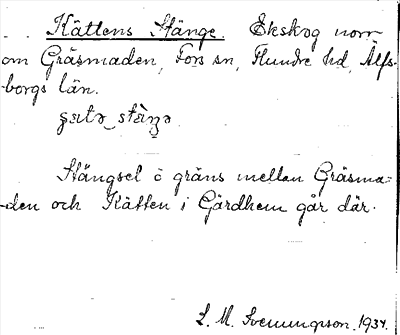 Kättens Stänge. Ekskog norr
om Gräsmaden, Fors sn, Flundre hd, Älfs-
borgs län.
Stängsel å gräns mellan Gräsma-
den och Kätten i Gärdhem går där.
L. M. Svenungsson 1934.